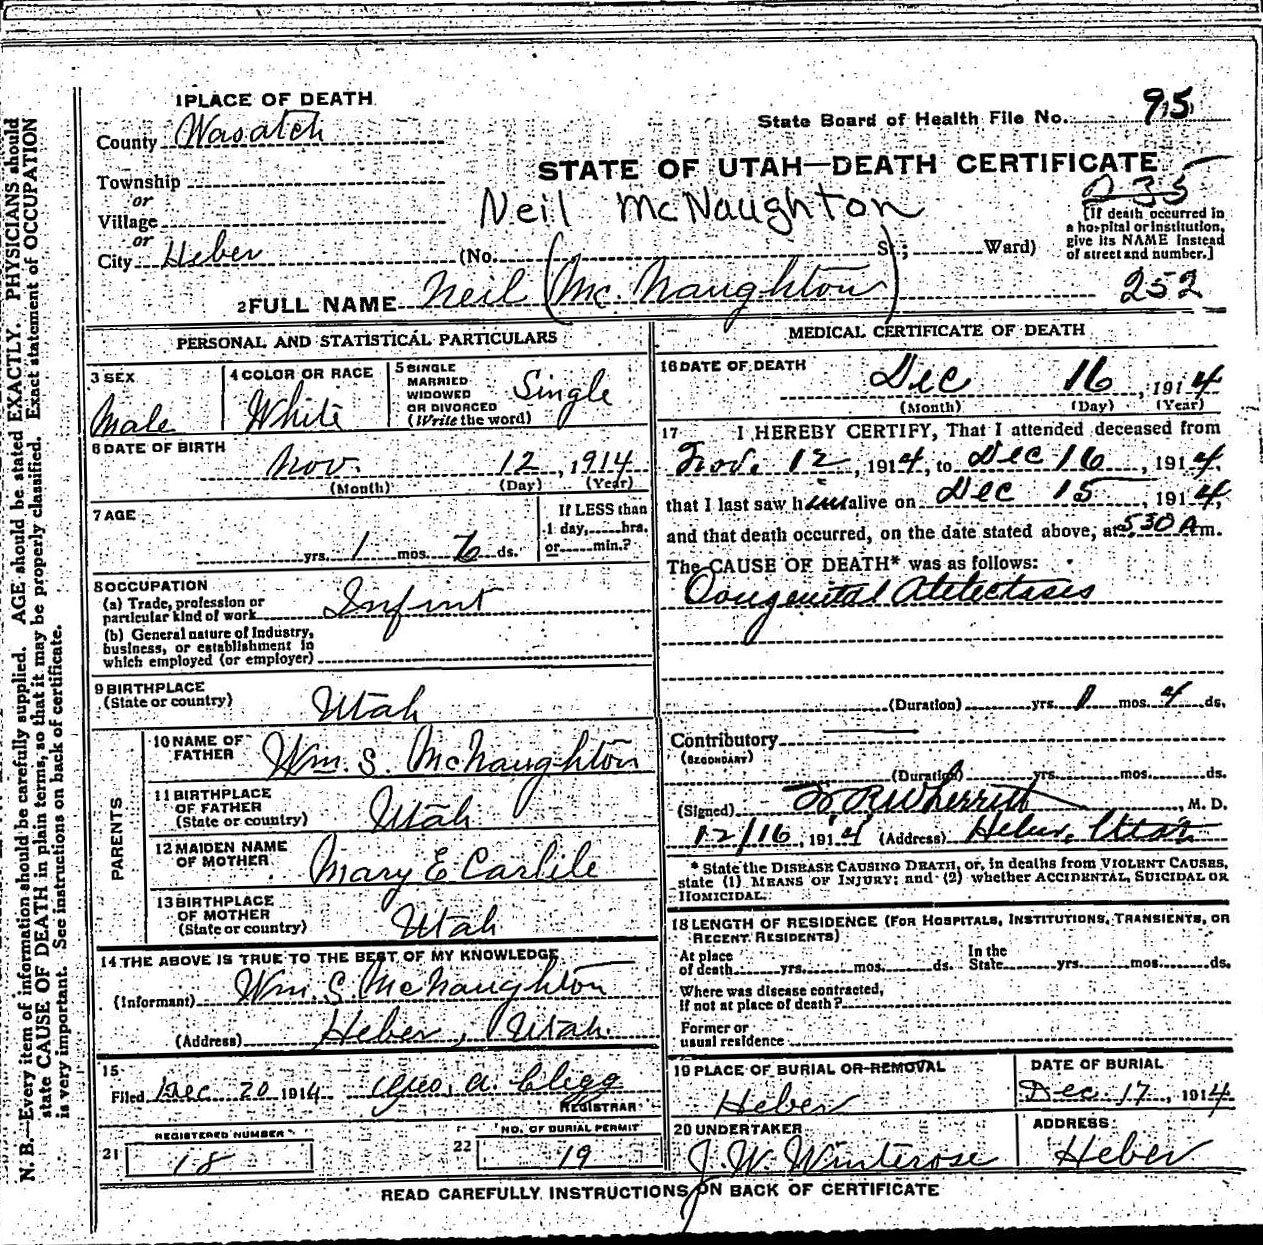 1 PLACE OF DEATH
County Wasatch
State Board of Health File No. 95
STATE OF UTAH—DEATH CERTIFICATE
Township
or
Village
or
City Heber
Neil McNaughton
235
(No. St.; Ward)
[If death occurred in
a hospital or institution,
give its NAME instead
of street and number.]
2 FULL NAME Neil (Mc.Naughton)
252
PERSONAL AND STATISTICAL PARTICULARS
3 SEX
Male
4 COLOR OR RACE
White
5 SINGLE
MARRIED
WIDOWED
OR DIVORCED
(Write the word)
Single
6 DATE OF BIRTH
Nov. 12, 1914
(Month) (Day) (Year)
7 AGE
yrs. 1 mos. ds.
If LESS than
1 day, hrs.
or min.?
8 OCCUPATION
(a) Trade, profession or
particular kind of work Infint
(b) General nature of Industry,
business, or establishment in
which employed (or employer)
9 BIRTHPLACE
(State or country) Utah
PARENTS
10 NAME OF
FATHER Wm. S. McNaughton
11 BIRTHPLACE
OF FATHER
(State or country) Utah
12 MAIDEN NAME
OF MOTHER Mary E Carlile
13 BIRTHPLACE
OF MOTHER
(State or country) Utah
14 THE ABOVE IS TRUE TO THE BEST OF MY KNOWLEDGE
(Informant) Wm. S. McNaughton
(Address) Heber, Utah.
15
Filed Dec 20 1914 Geo. A. Clegg
REGISTRAR
REGISTERED NUMBER
21 18
NO. OF BURIAL PERMIT
22 19
MEDICAL CERTIFICATE OF DEATH
16 DATE OF DEATH
Dec 16, 1914
(Month) (Day) (Year)
17 I HEREBY CERTIFY, That I attended deceased from
Nov. 12, 1914, to Dec 16, 1914,
that I last saw him alive on Dec 15, 1914,
and that death occurred, on the date stated above, at 530 A m.
The CAUSE OF DEATH* was as follows:
Congenital Atelectases
(Duration) yrs. 1 mos. 4 ds.
Contributory
(SECONDARY)
(Duration) yrs. mos. ds.
(Signed) W R Wherritt, M. D.
12/16, 1914 (Address) Heber, Utah
* State the DISEASE CAUSING DEATH, or, in deaths from VIOLENT CAUSES,
state (1) MEANS OF INJURY; and (2) whether ACCIDENTAL, SUICIDAL OR
HOMICIDAL.
18 LENGTH OF RESIDENCE (FOR HOSPITALS, INSTITUTIONS, TRANSIENTS, OR
RECENT RESIDENTS)
At place
of death yrs. mos. ds.
In the
State yrs. mos. ds.
Where was disease contracted,
if not at place of death?
Former or
usual residence
19 PLACE OF BURIAL OR REMOVAL
Heber
DATE OF BURIAL
Dec. 17, 1914
20 UNDERTAKER
J. W. Winterose
ADDRESS
Heber
READ CAREFULLY INSTRUCTIONS ON BACK OF CERTIFICATE
N. B.—Every item of information should be carefully supplied. AGE should be stated EXACTLY. PHYSICIANS should
state CAUSE OF DEATH in plain terms, so that it may be properly classified. Exact statement of OCCUPATION
is very important. See instructions on back of certificate.